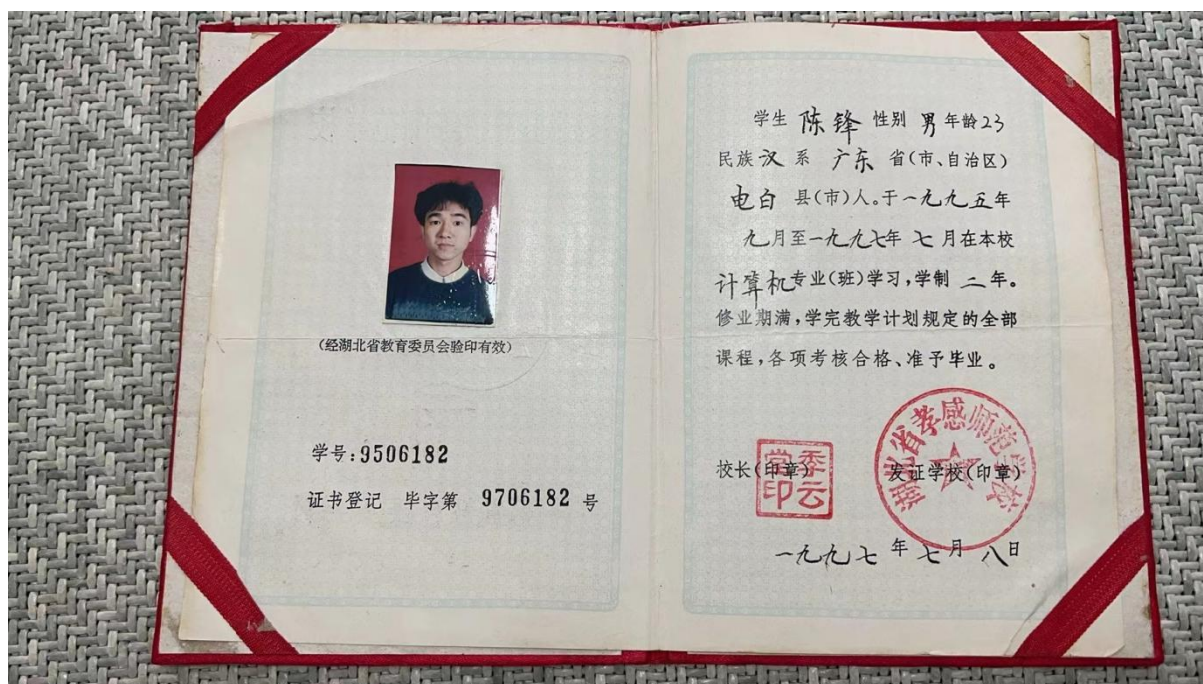 (经湖北省教育委员会验印有效)
学号:9506182
证书登记 毕字第 9706182 号
学生 陈锋 性别 男 年龄23
民族 汉 系 广东 省(市、自治区)
电白 县(市)人。于一九九五年
九月至一九九七年 七月在本校
计算机专业(班)学习,学制 二年。
修业期满,学完教学计划规定的全部
课程,各项考核合格、准予毕业。
湖北省孝感师范学校
校长(印章) 发证学校(印章)
一九九七年七月八日